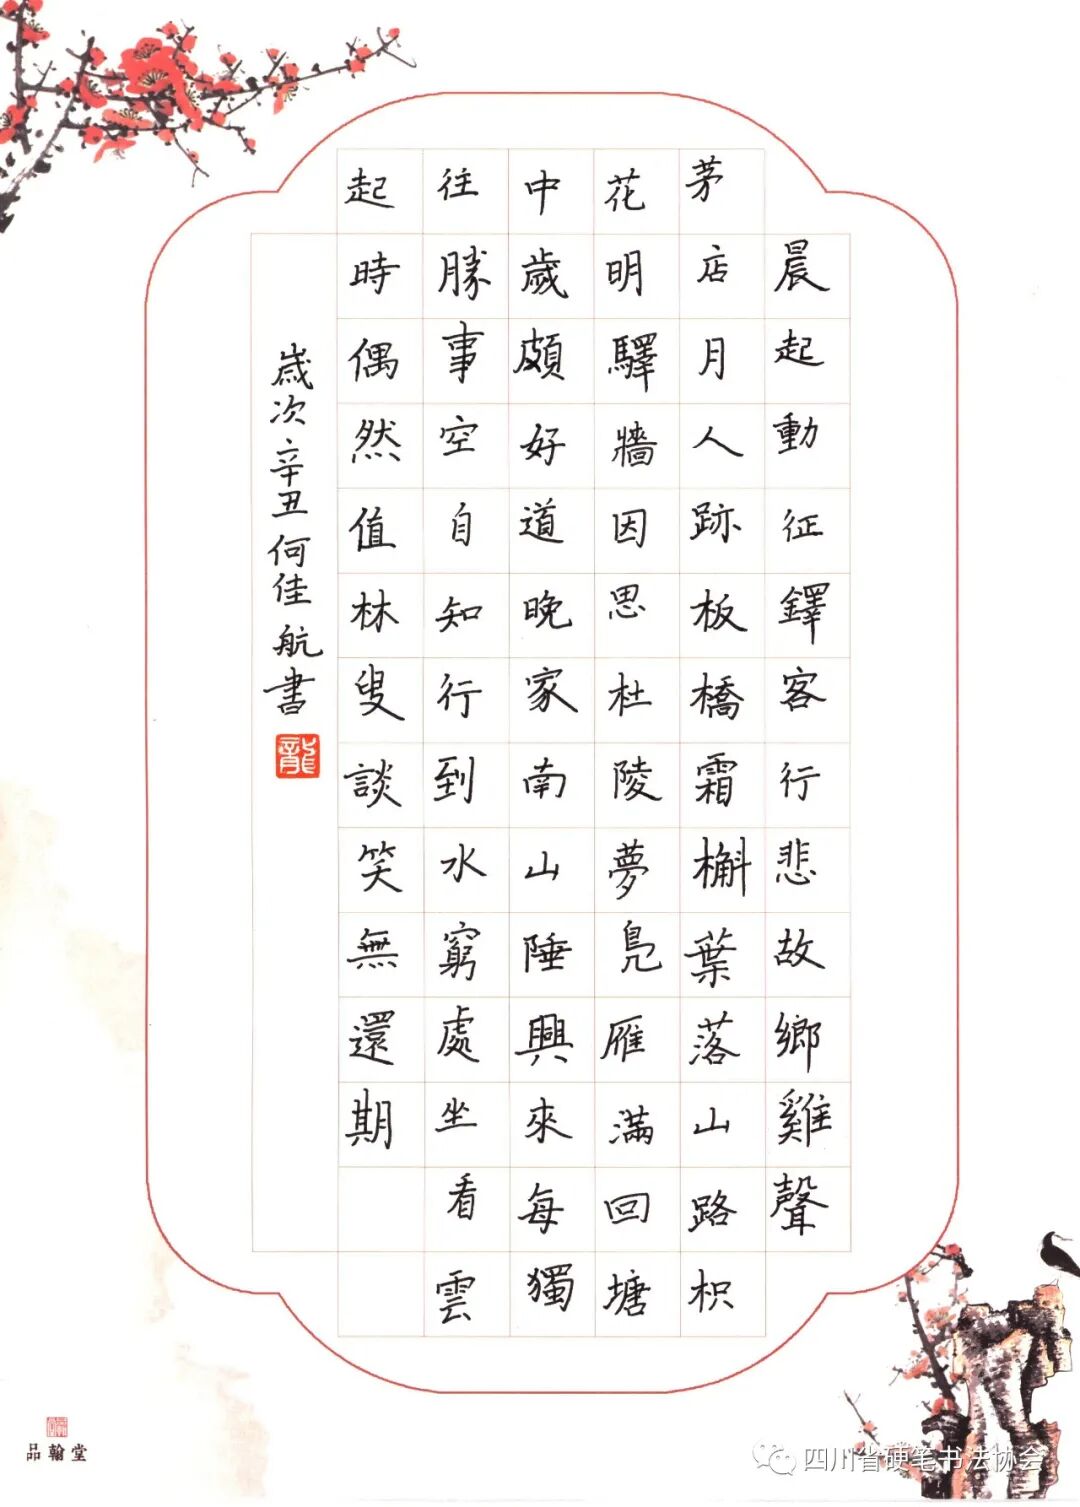 晨起動征鐸客行悲故鄉雞聲
茅店月人跡板橋霜槲葉落山路枳
花明驛牆因思杜陵夢鳧雁滿回塘
中歲頗好道晚家南山陲興來每獨
往勝事空自知行到水窮處坐看雲
起時偶然值林叟談笑無還期
歲次辛丑何佳航書
龍
品翰堂
四川省硬笔书法协会